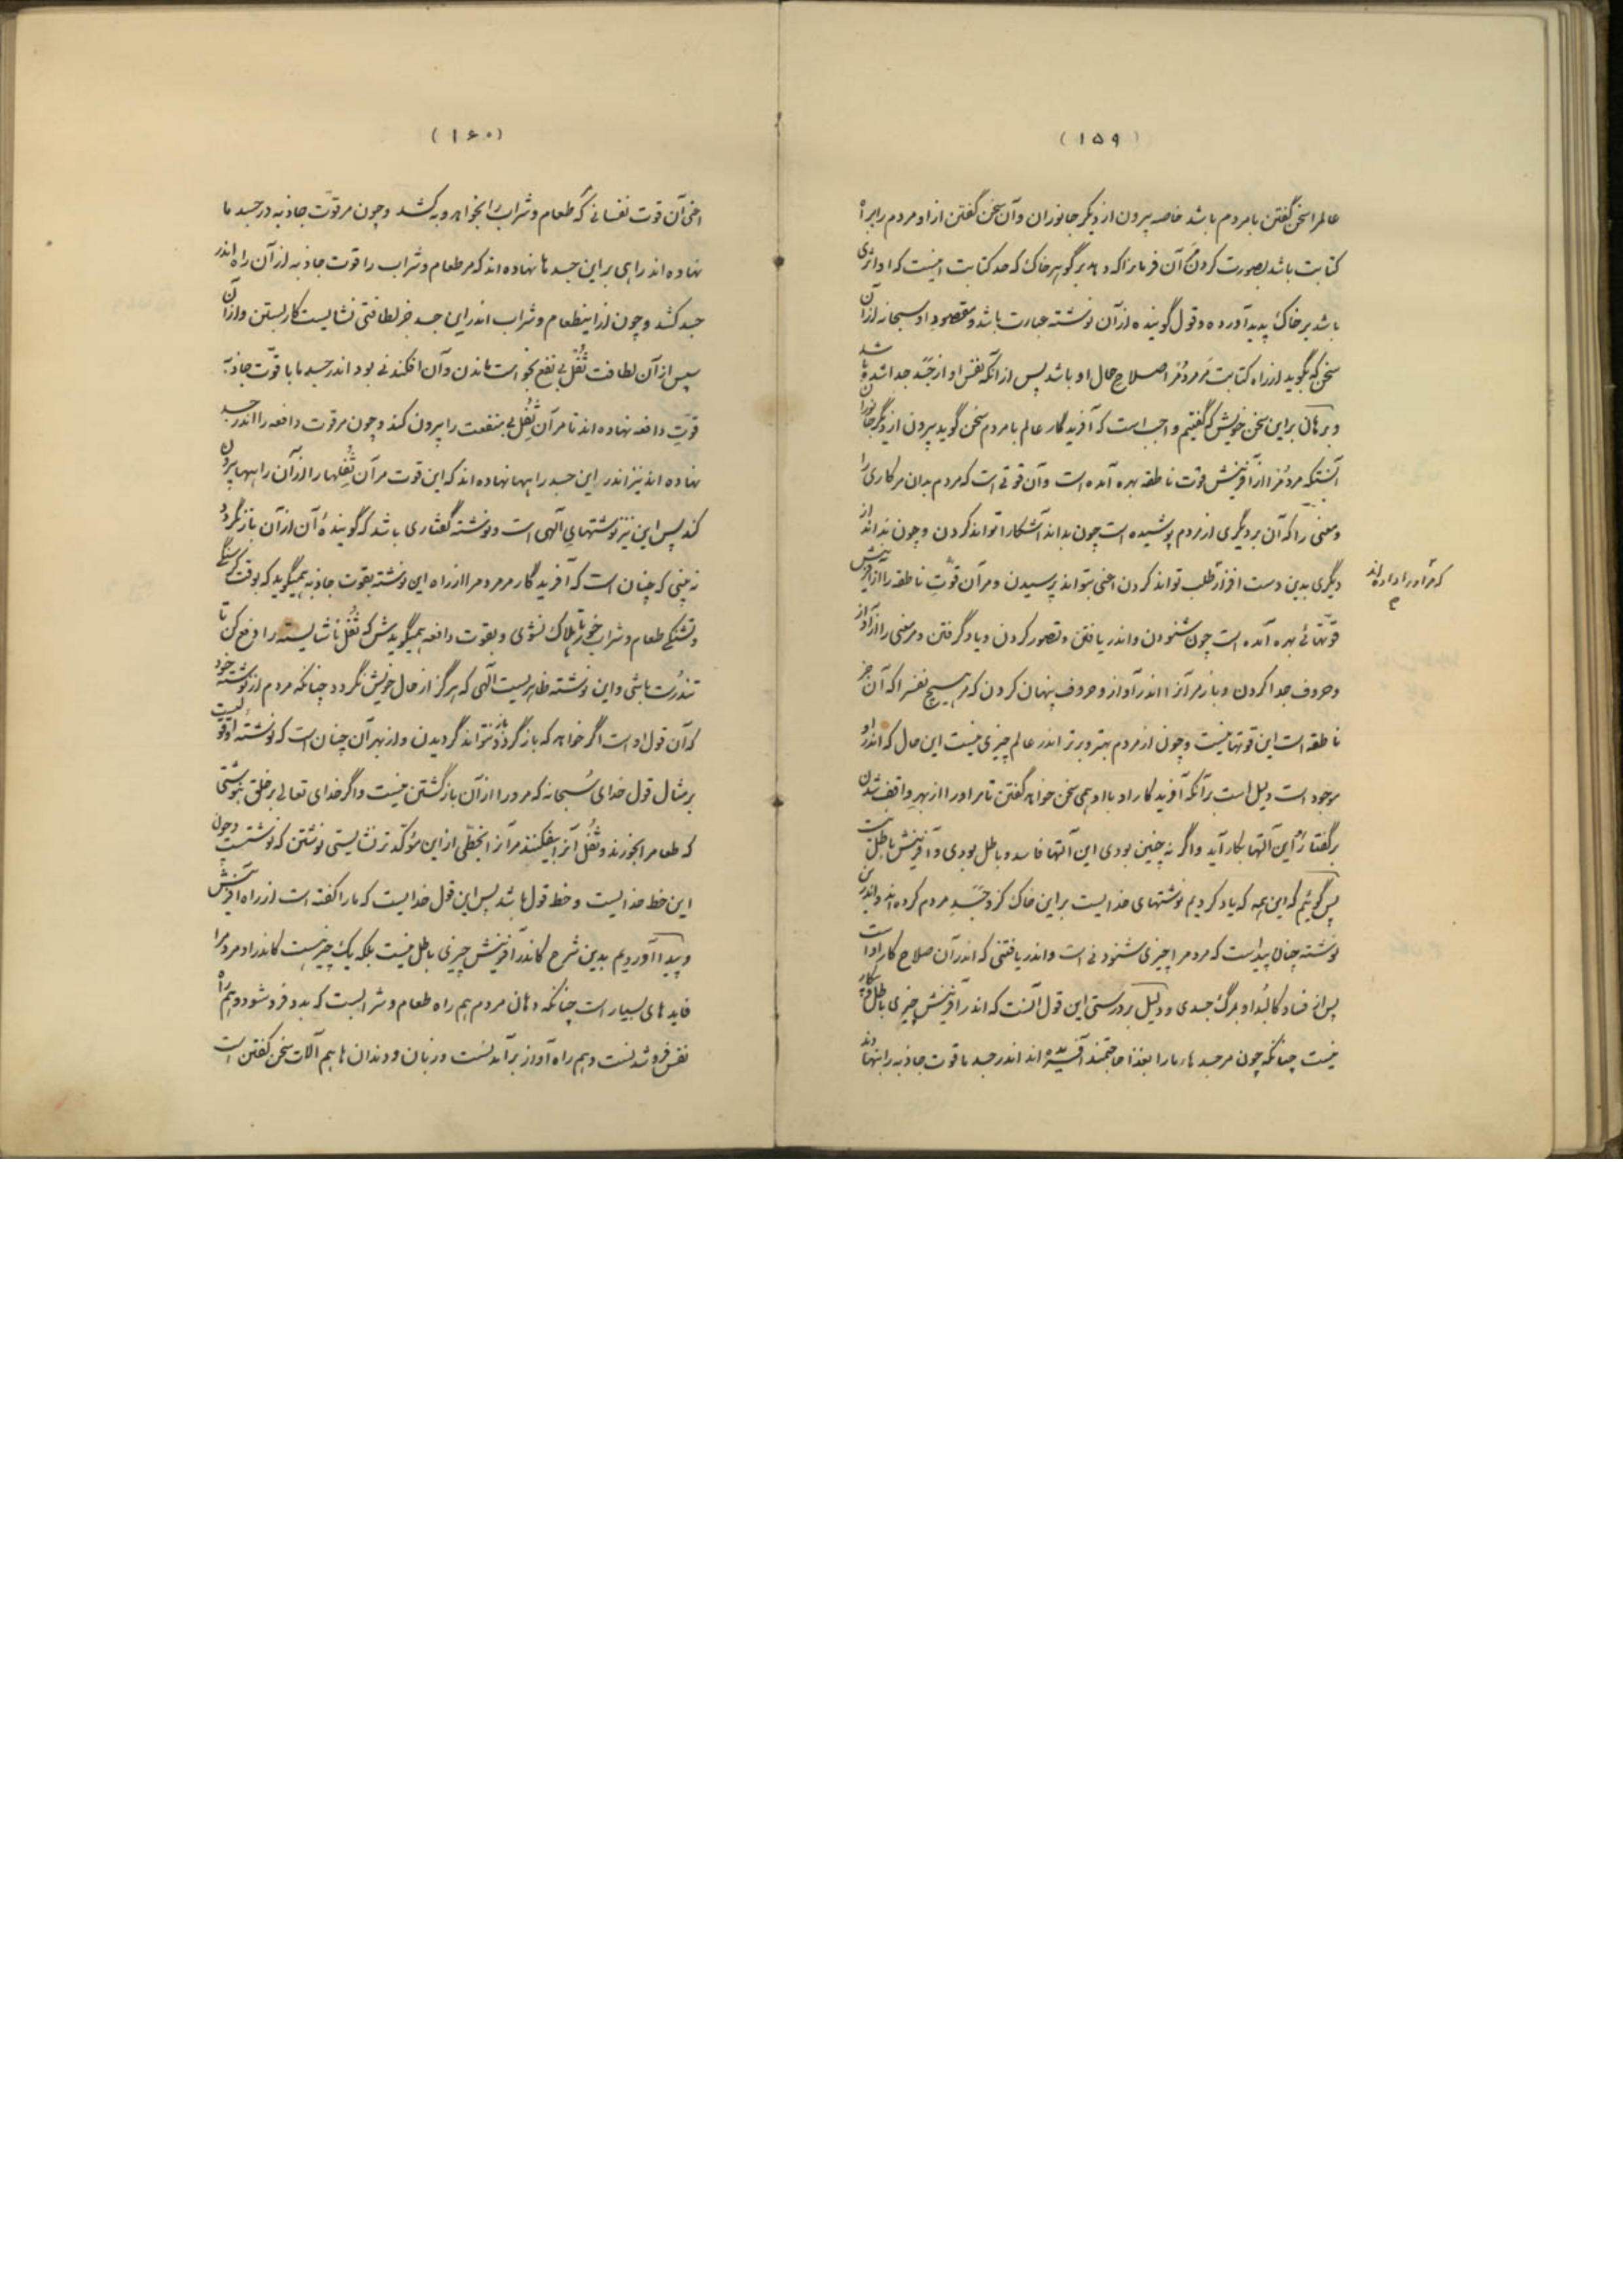 (۱۵۹)
عالم را سخن گفتن با مردم باشد خاصه بیرون از دیگر جانوران و آن سخن گفتن از او مردم را براه
کتابت باشد بصورت کردن مر آن فرمانرا که دهد بر گوهر خاک که حد کتابت اینست که او اثری
باشد بر خاک پدید آورده و قول گوینده از آن نوشته عبارت باشد و مقصود او سبحانه از آن
سخن که بگوید از راه کتابت مر مردم را صلاح حال او باشد پس از آنکه نفس او از جسد جدا شده باشد
و برهان بر این سخن خویش که گفتیم واجب است که آفریدگار عالم با مردم سخن گوید بیرون از دیگر جانوران
آنستکه مردم را از آفرینش قوت ناطقه بهره آمده است و آن قوتی است که مردم بدان مر کاری را
و معنی را که آن بر دیگری از مردم پوشیده است چون بداند آشکارا تواند کردن و چون نداند از
دیگری بدین دست افزار طلب تواند کردن اعنی بتواند پرسیدن و مر آن قوت ناطقه را از آفرینش
که مر او را داده اند
قوتهائی بهره آمده است چون شنودن و اندر یافتن و تصور کردن و یاد گرفتن و مر معنی را از آواز
و حروف جدا کردن و باز مر آنرا اندر آواز و حروف پنهان کردن که مر هیچ نفس را که آن جز
ناطقه است این قوتها نیست و چون از مردم بهتر و برتر اندر عالم چیزی نیست این حال که اندر او
موجود است دلیل است بر آنکه آفریدگار او با او همی سخن خواهد گفتن تا مر او را از بهر واقف شدن
بر گفتار او این آلتها بکار آید و اگر نه چنین بودی این آلتها فاسد و باطل بودی و آفرینش باطل نیست
پس گوئیم که این همه که یاد کردیم نوشتهای خدایست بر این خاک کزو جسد مردم کرده اند و اندر این
نوشته چنان پیداست که مردم را چیزی شنودنی است و اندر یافتنی که اندر آن صلاح کار او است
پس از فساد کالبد او بمرگ جسدی و دلیل بر درستی این قول آنست که اندر آفرینش چیزی باطل و بیکار
نیست چنانکه چون مر جسدهای ما را بغذا حاجتمند آفریده اند اندر جسد ما قوت جاذبه را بنهادند
(۱۶۰)
اعنی آن قوت نفسانی که طعام و شراب را بخواهد و بکشد و چون مر قوت جاذبه در جسد ما
نهاده اند راهی بر این جسد ما نهاده اند که مر طعام و شراب را قوت جاذبه از آن راه اندر
جسد کشد و چون از این طعام و شراب اندر این جسد جز لطافتی نشایست کار بستن و از آن
سپس از آن لطافت ثفل بی نفع بخواست ماندن و آن افکندنی بود اندر جسد ما با قوت جاذبه
قوت دافعه نهاده اند تا مر آن ثفل بی منفعت را بیرون کند و چون مر قوت دافعه را اندر جسد
نهاده اند نیز اندر این جسد راهها نهاده اند که این قوت مر آن ثفلها را از آن راهها بیرون
کند پس این نیز نوشتهای الهی است و نوشته گفتاری باشد که گوینده آن از آن باز نگردد
نه بینی که چنان است که آفریدگار مر مردم را از راه این نوشته بقوت جاذبه همیگوید که بوقت گرسنگی
و تشنگی طعام و شراب خور تا هلاک نشوی و بقوت دافعه همیگویدش که ثفل ناشایسته را دفع کن تا
تندرست باشی و این نوشته ظاهریست الهی که هرگز از حال خویش نگردد چنانکه مردم از نوشته خود
که آن قول او است اگر خواهد که باز گردد باز نتواند گردیدن و از بهر آن چنان است که نوشته او قولیست
بر مثال قول خدای سبحانه که مر او را از آن باز گشتن نیست و اگر خدای تعالی بر خلق بنوشتی
که طعام را بخورند و ثفل آنرا بیفکنند مر آنرا بخطی از این مؤکدتر نشایستی نوشتن که نوشتست و چون
این خط خدایست و خط قول باشد پس این قول خدایست که ما را گفته است از راه آفرینش
و پیدا آوردیم بدین شرح کاندر آفرینش چیزی باطل نیست بلکه یک چیز نیست کاندر او مر مردم را
فایده های بسیار است چنانکه دهان مردم هم راه طعام و شرابست که بدو فرو شود و هم راه
نفس فروشدنست و هم راه آواز برآمدنست و زبان و دندان ها هم آلات سخن گفتن است